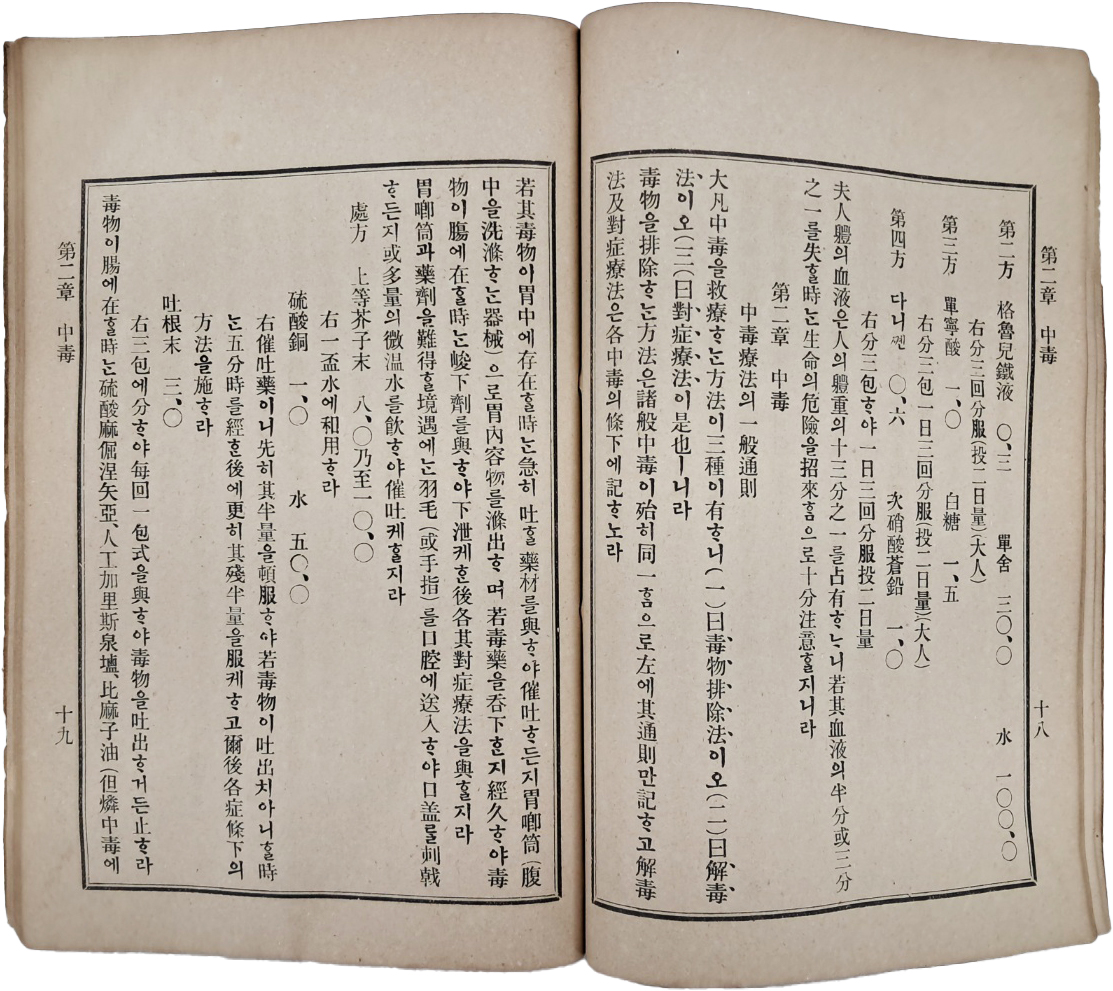 第二章 中毒
十八
第二方 格魯兒鐵液 〇、三 單舍 三〇、〇 水 一〇〇、〇
右分三回分服(投二日量)(大人)
第三方 單寧酸 一、〇 白糖 一、五
右分三包一日三回分服(投二日量)(大人)
第四方 다니껜 〇、六 次硝酸蒼鉛 一、〇
右分三包ᄒᆞ야一日三回分服投二日量
夫人體의血液은人의體重의十三分之一를占有ᄒᆞᄂᆞ니若其血液의半分或三分
之一를失ᄒᆞᆯ時ᄂᆞᆫ生命의危險을招來ᄒᆞᆷ으로十分注意ᄒᆞᆯ지니라
第二章 中毒
中毒療法의一般通則
大凡中毒을救療ᄒᆞᄂᆞᆫ方法이三種이有ᄒᆞ니(一)曰毒物排除法이오(二)曰解毒
法이오(三)曰對症療法이是也ㅣ니라
毒物을排除ᄒᆞᄂᆞᆫ方法은諸般中毒이殆히同一ᄒᆞᆷ으로左에其通則만記ᄒᆞ고解毒
法及對症療法은各中毒의條下에記ᄒᆞ노라
若其毒物이胃中에存在ᄒᆞᆯ時ᄂᆞᆫ急히吐ᄒᆞᆯ藥材를與ᄒᆞ야催吐ᄒᆞ든지胃唧筒(腹
中을洗滌ᄒᆞᄂᆞᆫ器械)으로胃內容物를滌出ᄒᆞ며若毒藥을呑下ᄒᆞᆫ지經久ᄒᆞ야毒
物이腸에在ᄒᆞᆯ時ᄂᆞᆫ峻下劑를與ᄒᆞ야下泄케ᄒᆞᆫ後各其對症療法을與ᄒᆞᆯ지라
胃唧筒과藥劑을難得ᄒᆞᆯ境遇에ᄂᆞᆫ羽毛(或手指)를口腔에送入ᄒᆞ야口盖를刺戟
ᄒᆞ든지或多量의微温水를飮ᄒᆞ야催吐케ᄒᆞᆯ지라
處方 上等芥子末 八、〇乃至一〇、〇
右一盃水에和用ᄒᆞ라
硫酸銅 一、〇 水 五〇、〇
右催吐藥이니先히其半量을頓服ᄒᆞ야若毒物이吐出치아니ᄒᆞᆯ時
ᄂᆞᆫ五分時를經ᄒᆞᆫ後에更히其殘半量을服케ᄒᆞ고爾後各症條下의
方法을施ᄒᆞ라
吐根末 三、〇
右三包에分ᄒᆞ야每回一包式을與ᄒᆞ야毒物을吐出ᄒᆞ거든止ᄒᆞ라
毒物이腸에在ᄒᆞᆯ時ᄂᆞᆫ硫酸麻倔涅矢亞、人工加里斯泉壚、比麻子油(但燐中毒에
第二章 中毒
十九